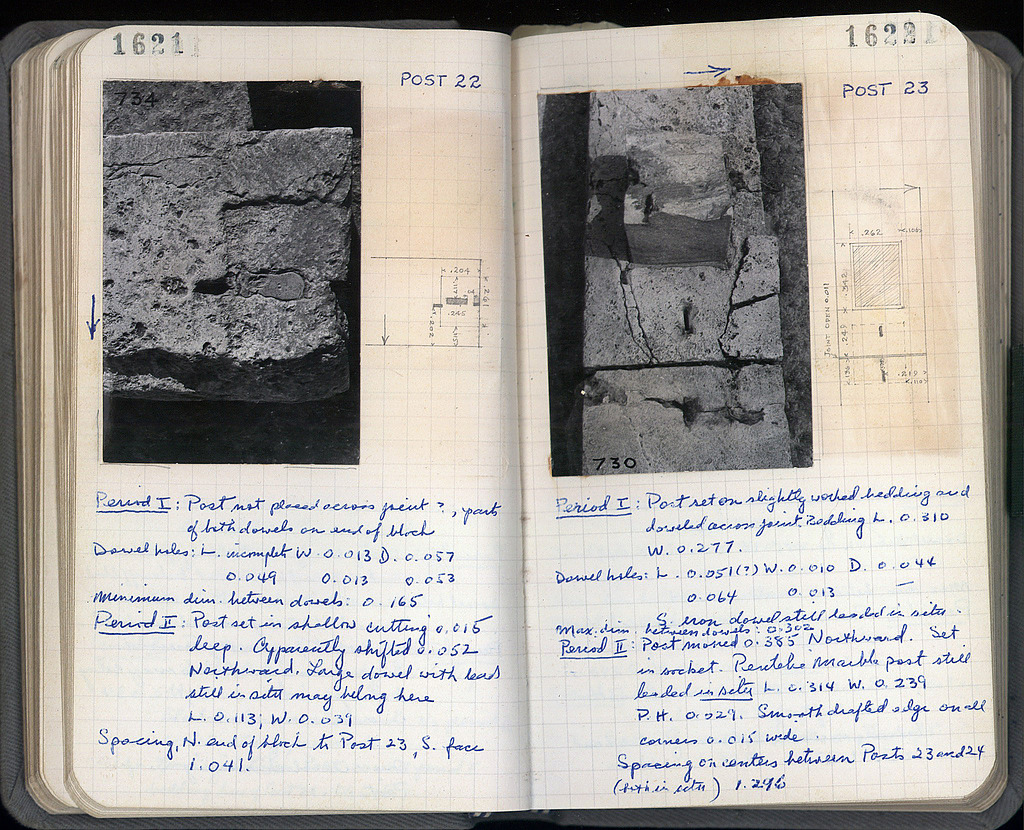 1621
POST 22
734
.204
.245
.202
Period I: Post not placed across joint?, parts
of both dowels on end of block
Dowel holes: L. incomplete W. 0.013 D. 0.057
0.049 0.013 0.053
Minimum dim. between dowels: 0.165
Period II: Post set in shallow cutting 0.015
deep. Apparently shifted 0.052
Northward. Large dowel with lead
still in situ may belong here
L. 0.113; W. 0.039
Spacing, N. end of block to Post 23, S. face
1.041.
1622
POST 23
730
.262
.342
JOINT OPEN 0.011
.249
.219
Period I: Post set on slightly worked bedding and
doweled across joint. Bedding L. 0.310
W. 0.277.
Dowel holes: L. 0.051(?) W. 0.010 D. 0.044
0.064 0.013 —
S. iron dowel still leaded in situ.
Max. dim. between dowels: 0.302
Period II: Post moved 0.385 Northward. Set
in socket. Pentelic marble post still
leaded in situ L. 0.314 W. 0.239
P.H. 0.029. Smooth drafted edge on all
corners 0.015 wide.
Spacing on centers between Posts 23 and 24
(both in situ) 1.246